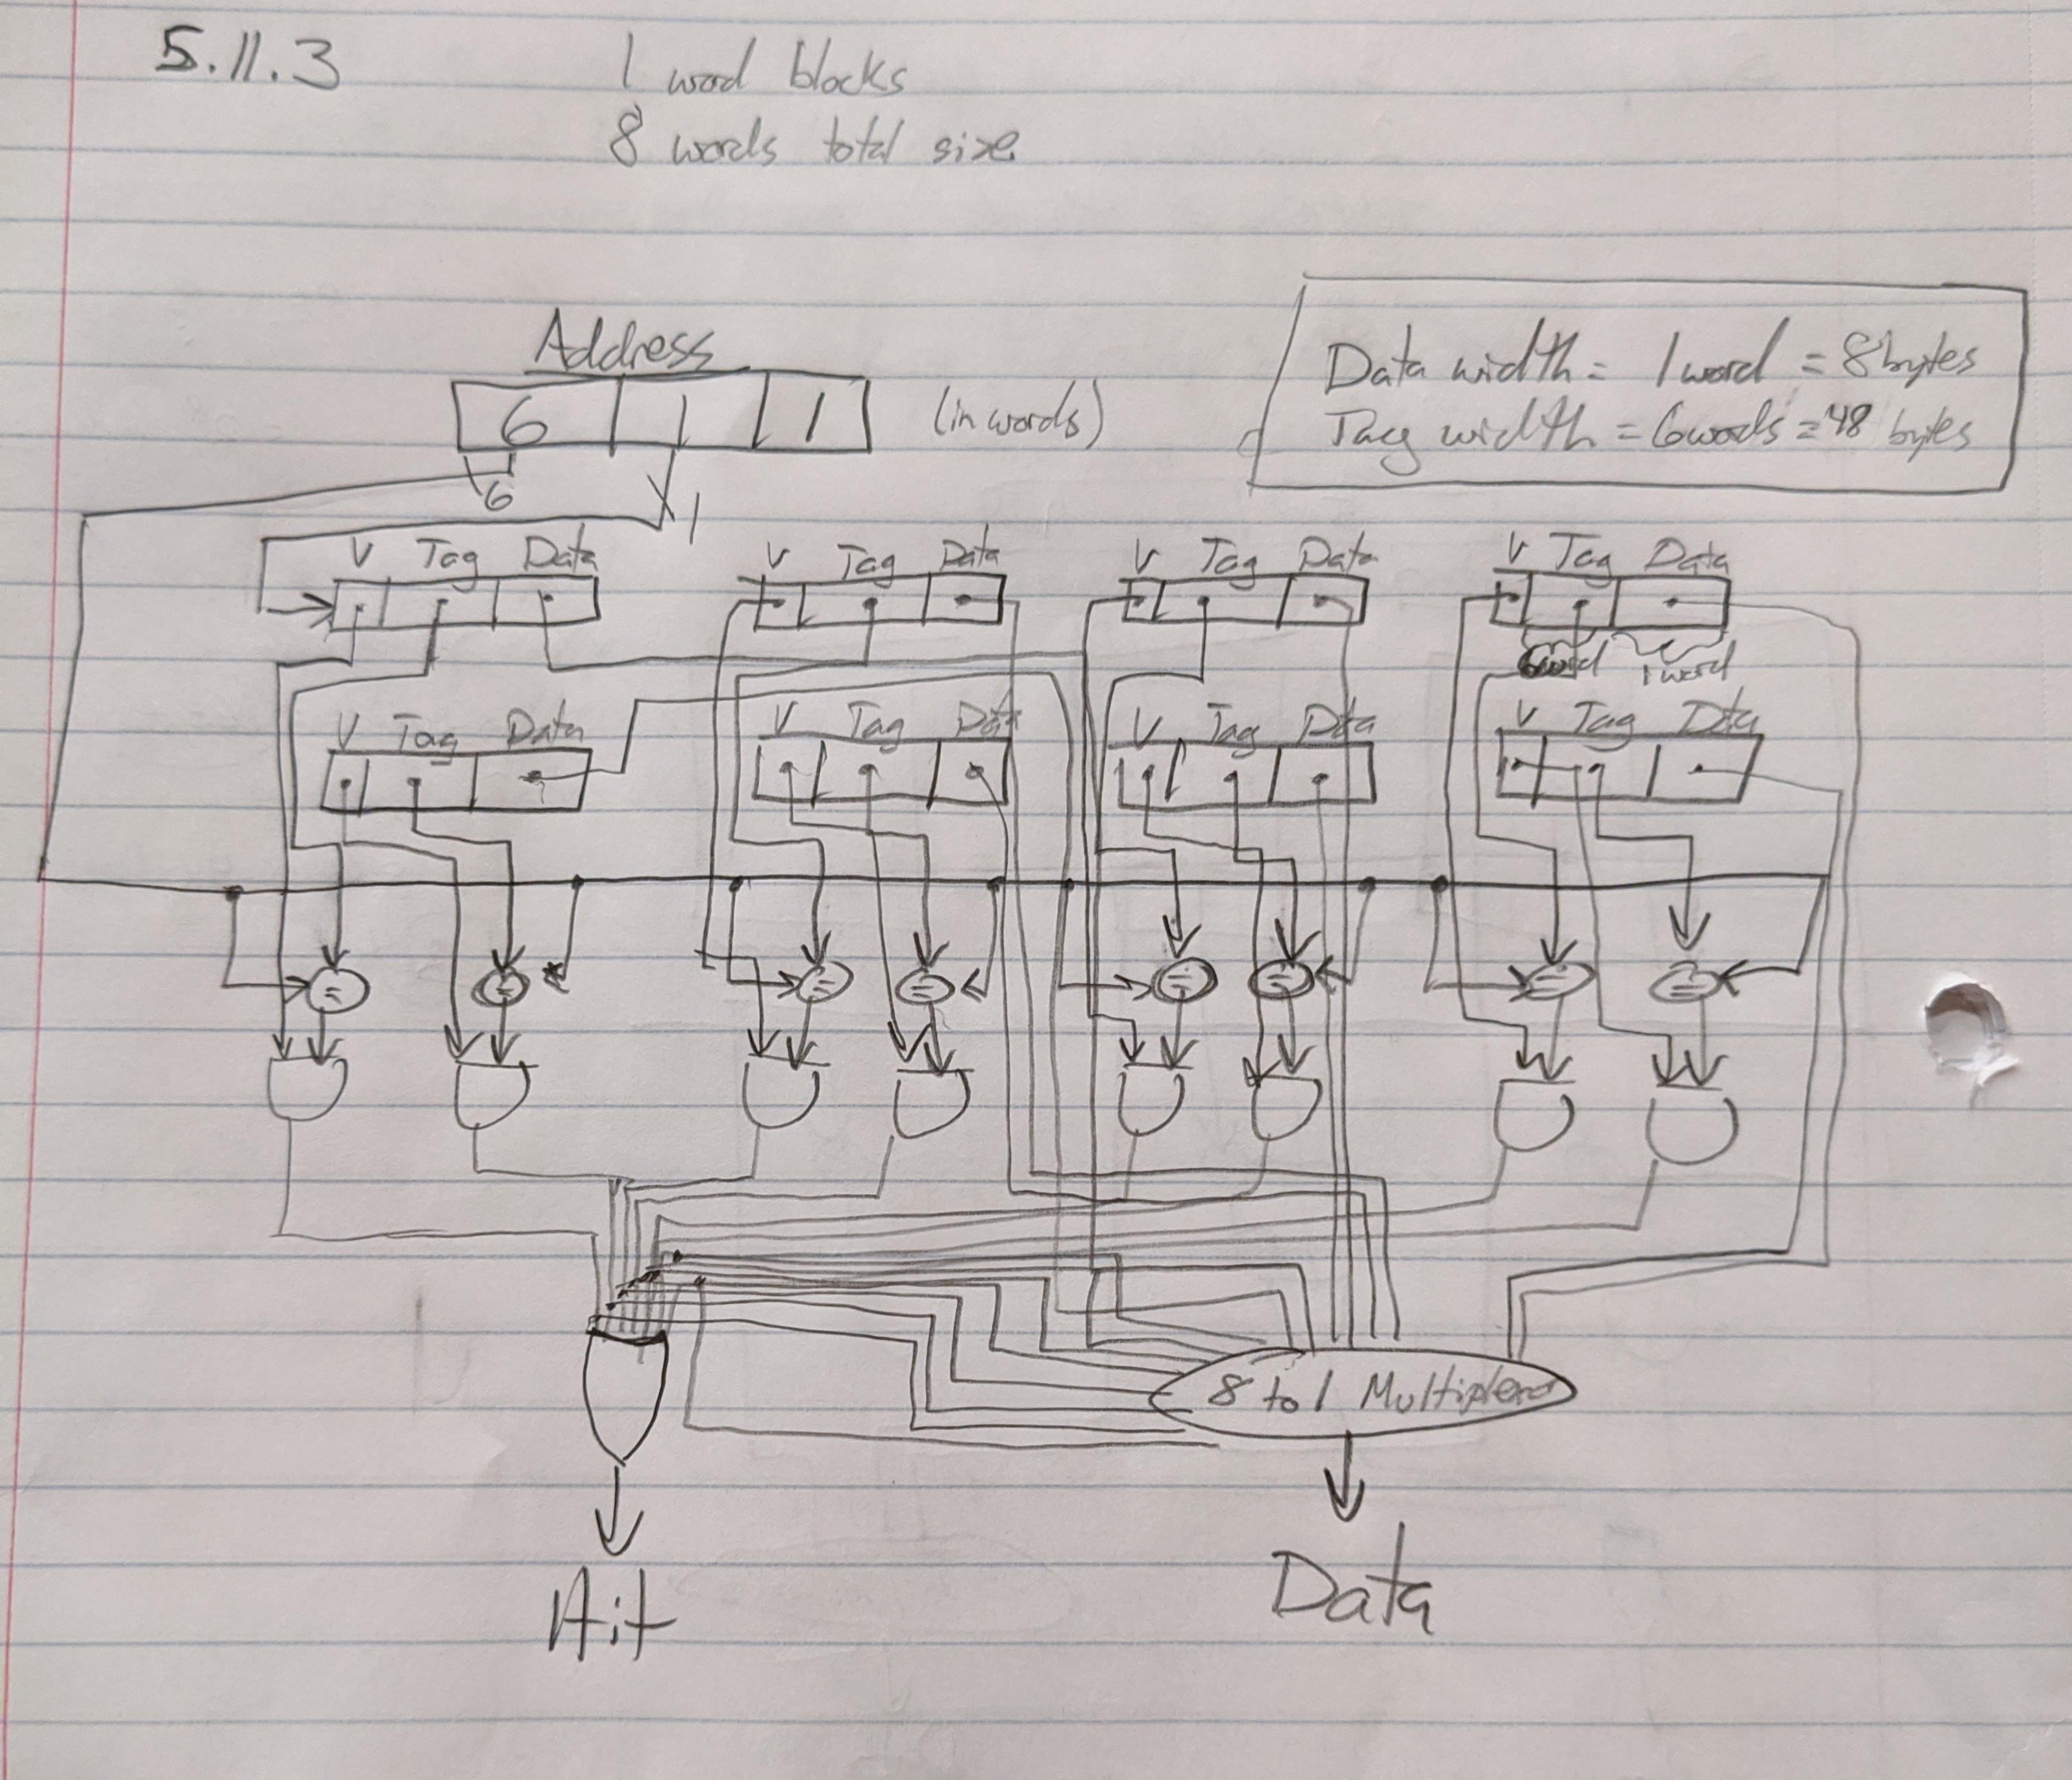 5.11.3
1 word blocks
8 words total size
Address
6 1 1 (in words)
Data width = 1 word = 8 bytes
Tag width = 6 words = 48 bytes
6
1
V Tag Data V Tag Data V Tag Data V Tag Data
1 word
V Tag Data V Tag Data V Tag Data V Tag Data
= = = = = = = =
8 to 1 Multiplexor
Hit
Data